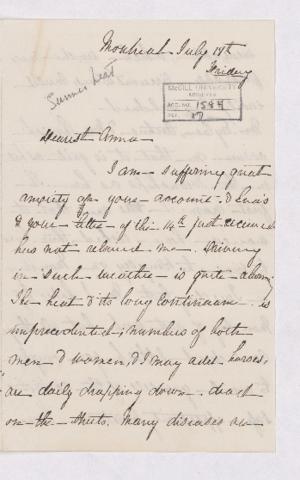 Montreal July 17th
Friday
Summer heat
McGILL UNIVERSITY
ARCHIVES
ACC. NO. 1584
REF. 17
Dearest Anna
I am suffering great
anxiety on your account & Eva's
& your letter of the 14th just received
has not relieved me. Driving
in such weather is quite
The heat & its long continuance is
unprecedented; numbers of both
men & women, & I may add horses,
are daily dropping down dead
on the streets. Many diseases are